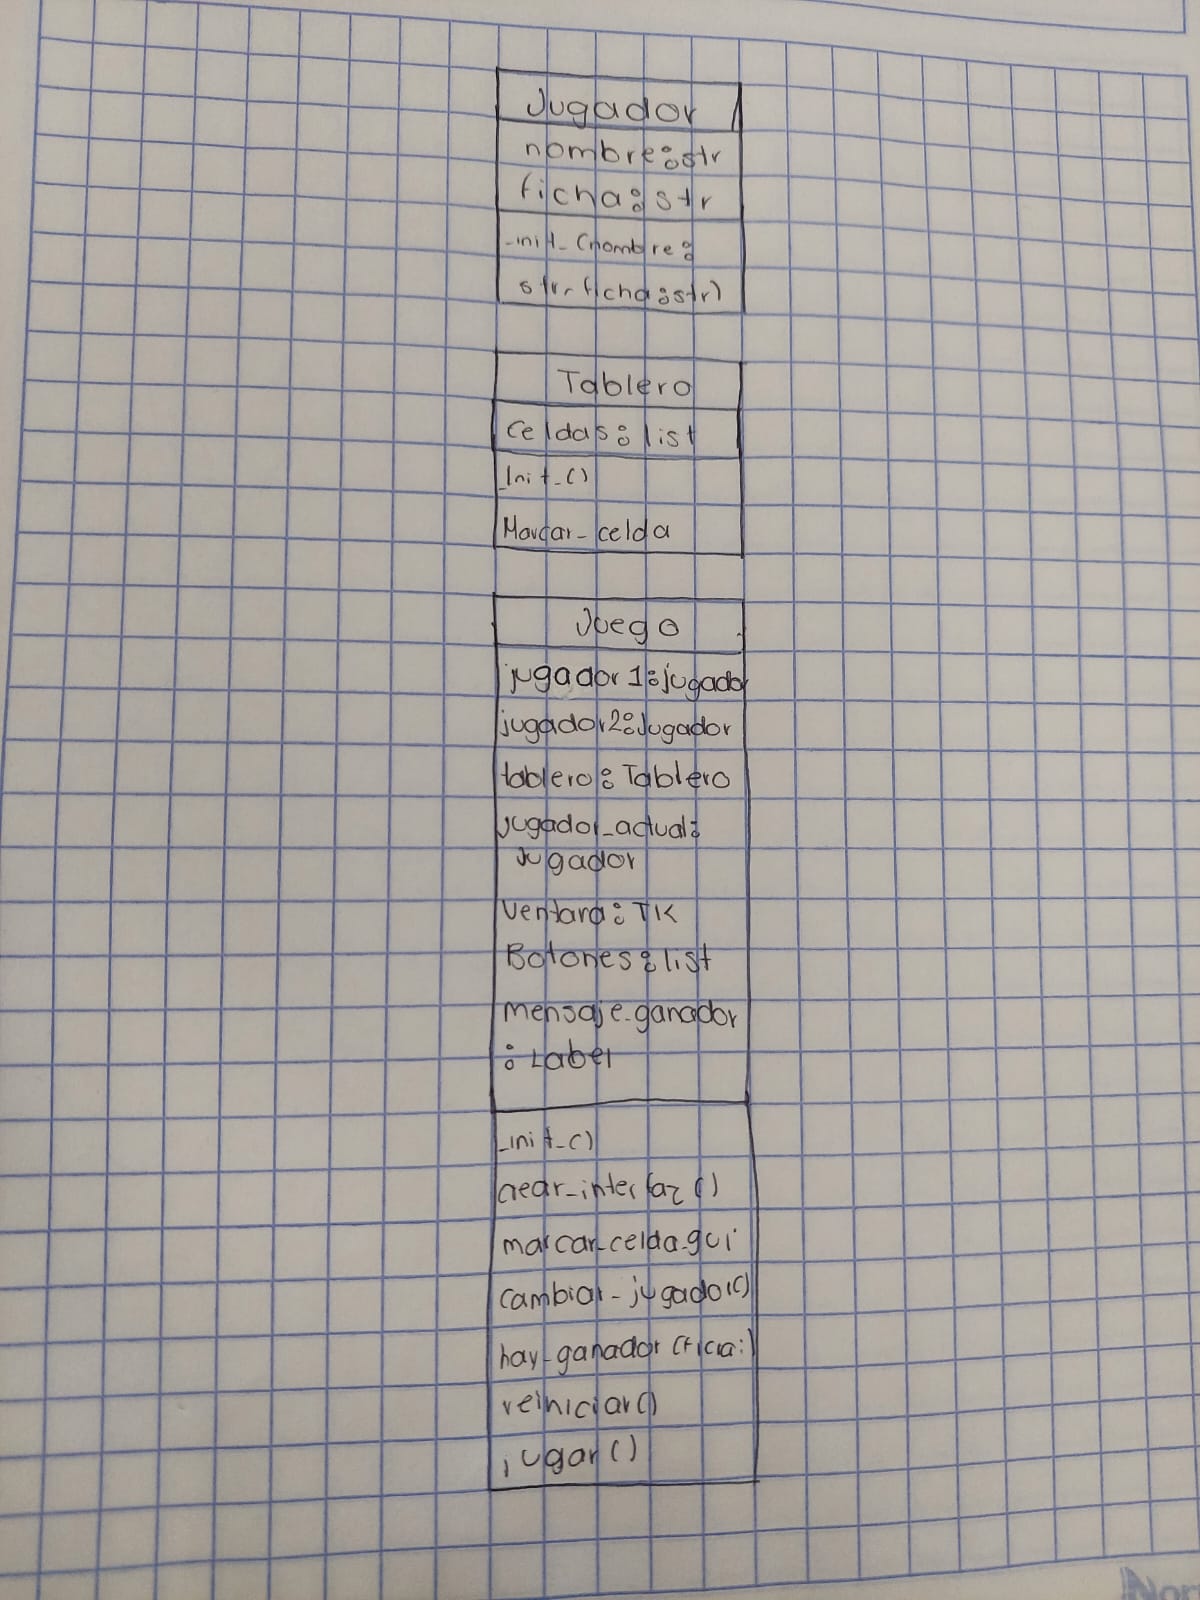 Jugador
nombre:str
ficha: str
_init_(nombre:
str, ficha:str)
Tablero
celdas: list
_Init_()
Marcar_celda
Juego
jugador1:jugador
jugador2:Jugador
tablero: Tablero
jugador_actual:
Jugador
Ventana: TK
Botones: list
mensaje_ganador
: Label
_init_()
crear_interfaz()
marcar_celda_gui
cambiar_jugador()
hay_ganador
reiniciar()
jugar()